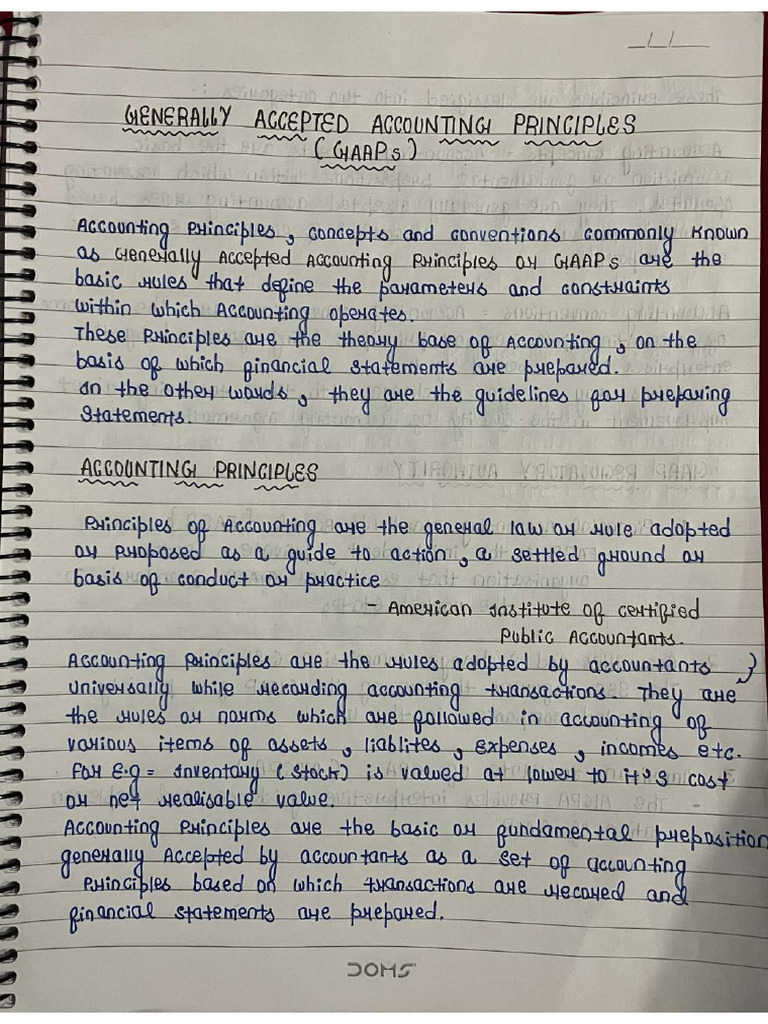 __/__/____
GENERALLY ACCEPTED ACCOUNTING PRINCIPLES
(GAAPs)
Accounting Principles, concepts and conventions commonly known
as Generally Accepted Accounting Principles or GAAPs are the
basic rules that define the parameters and constraints
within which Accounting operates.
These Principles are the theory base of Accounting, on the
basis of which financial statements are prepared.
In the other words, they are the guidelines for preparing
Statements.
ACCOUNTING PRINCIPLES
Principles of Accounting are the general law or rule adopted
or proposed as a guide to action, a settled ground or
basis of conduct or practice
- American Institute of certified
Public Accountants.
Accounting Principles are the rules adopted by accountants }
universally while recording accounting transactions. They are
the rules or norms which are followed in accounting of
various items of assets, liablites, expenses, incomes etc.
For E.g = Inventory (Stock) is valued at lower to it's cost
or net realisable value.
Accounting Principles are the basic or fundamental preposition
generally Accepted by accountants as a set of accounting
Principles based on which transactions are recored and
financial statements are prepared.
DOMS